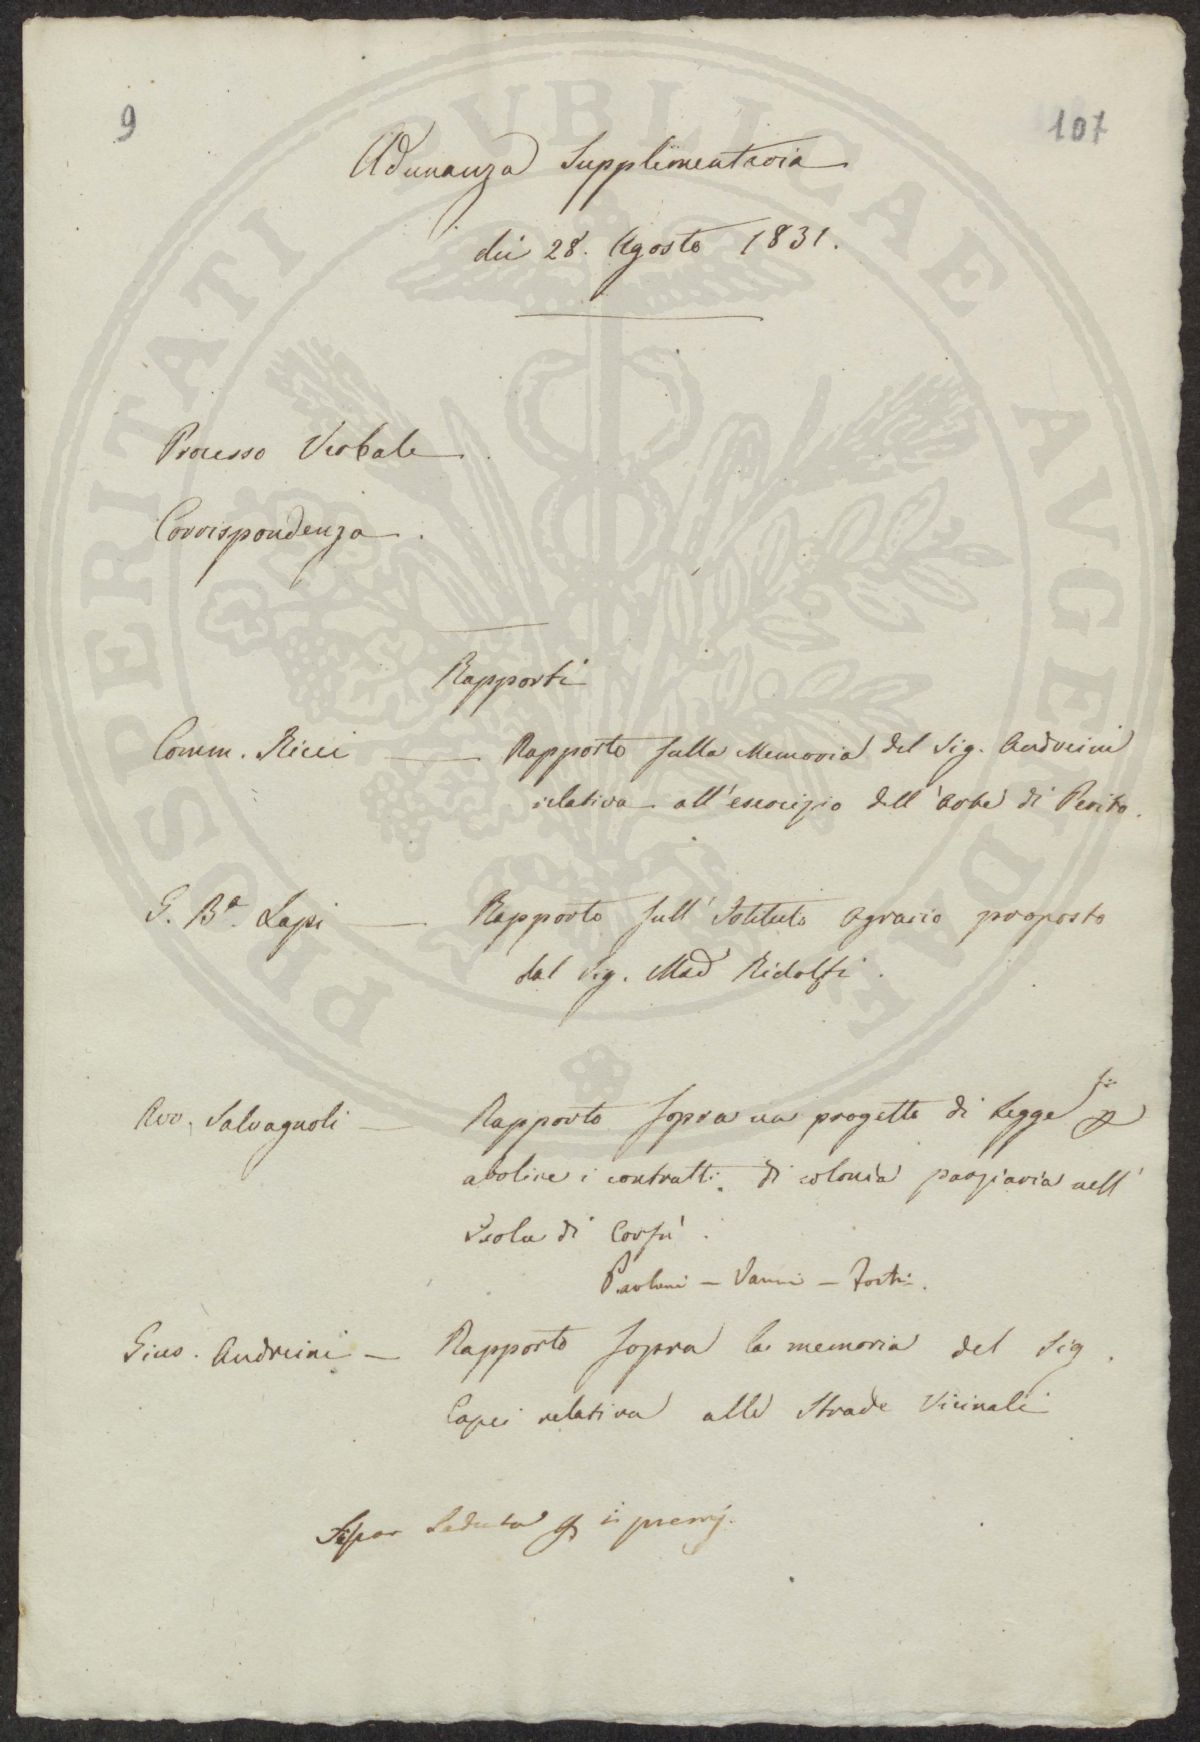 9
107
Adunanza Supplimentaria
dei 28. Agosto 1831.
Processo Verbale.
Corrispondenza.
Rapporti
Comm. Ricci — Rapporto sulla Memoria del Sig. Andreini
relativa all'esercizio dell'arte di Perito.
G. Bª. Lapi — Rapporto sull'Istituto Agrario proposto
dal Sig. Mad Ridolfi.
Avv. Salvagnoli — Rapporto sopra un progetto di Legge
abolire i contratti di colonia parziaria nell'
Isola di Corfù.
Paoluni — Vanni — Forti.
Gius. Andreini — Rapporto sopra la memoria del Sig.
Capei relativa alle Strade Vicinali
Seduta i premj.
PROSPERITATI PVBLICAE AVGENDAE